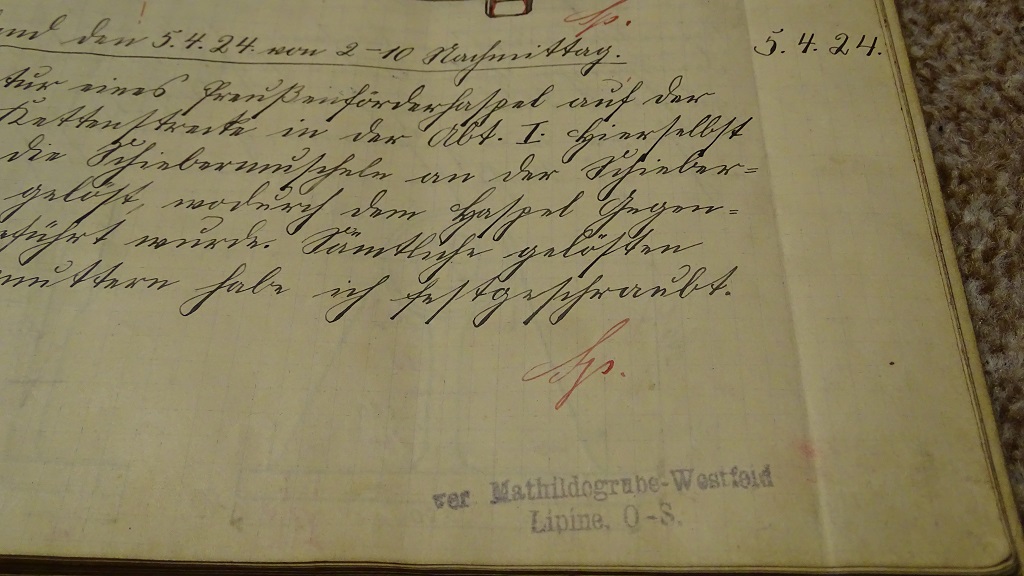 Sp.
und den 5.4.24. von 2-10 Nachmittag.
5.4.24.
tur eines Preußenförderhaspel auf der
Kettenstrecke in der Abt. I. Hierselbst
die Schiebermuscheln an der Schieber=
gelöst, wodurch dem Haspel Gegen=
eführt wurde. Sämtliche gelösten
muttern habe ich festgeschraubt.
Sp.
ver Mathildegrube-Westfeld
Lipine, O-S.